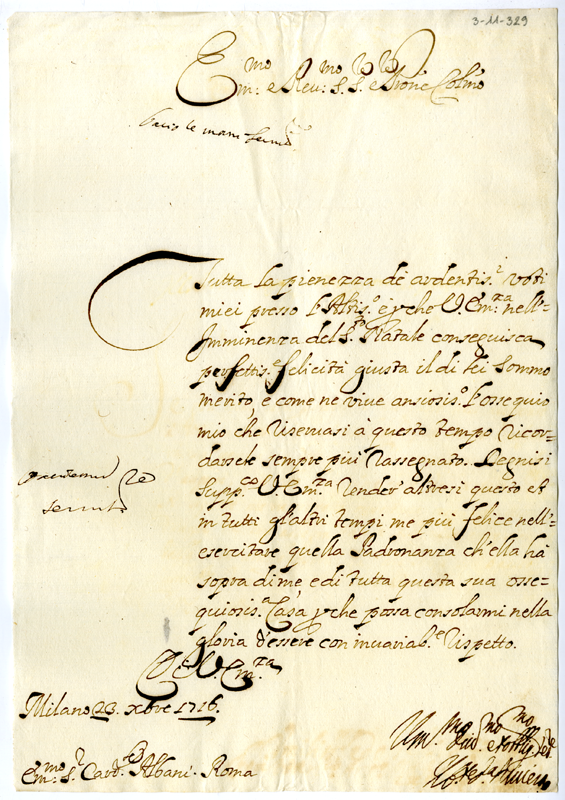 3-11-329
Em:mo e Reu:mo S. S. e Pròne Col.mo
bacio le mani
Tutta la pienezza de ardentis.i voti
miei presso l'Altis.o è p che V. Em.za nell'=
Imminenza del S.to Natale conseguisca
perfettis.e felicità giusta il di lei sommo
merito, e come ne viue ansiosis.o l'ossequio
mio, che riseruasi à questo tempo ricor=
darsele sempre più rassegnato. Degnisi
supp.ce V. Em.za render' altresi questo et
in tutti gl'altri tempi me più felice nell'=
esercitare quella Padronanza ch'ella hà
sopra di me e di tutta questa sua osse=
quiosis.a Casa p che possa consolarmi nella
gloria d'essere con inuariab.e rispetto.
Di V. Em.za
Milano 23. Xbre 1716.
Um.mo Diu.mo
Em.mo S.r Card.l Albani. Roma